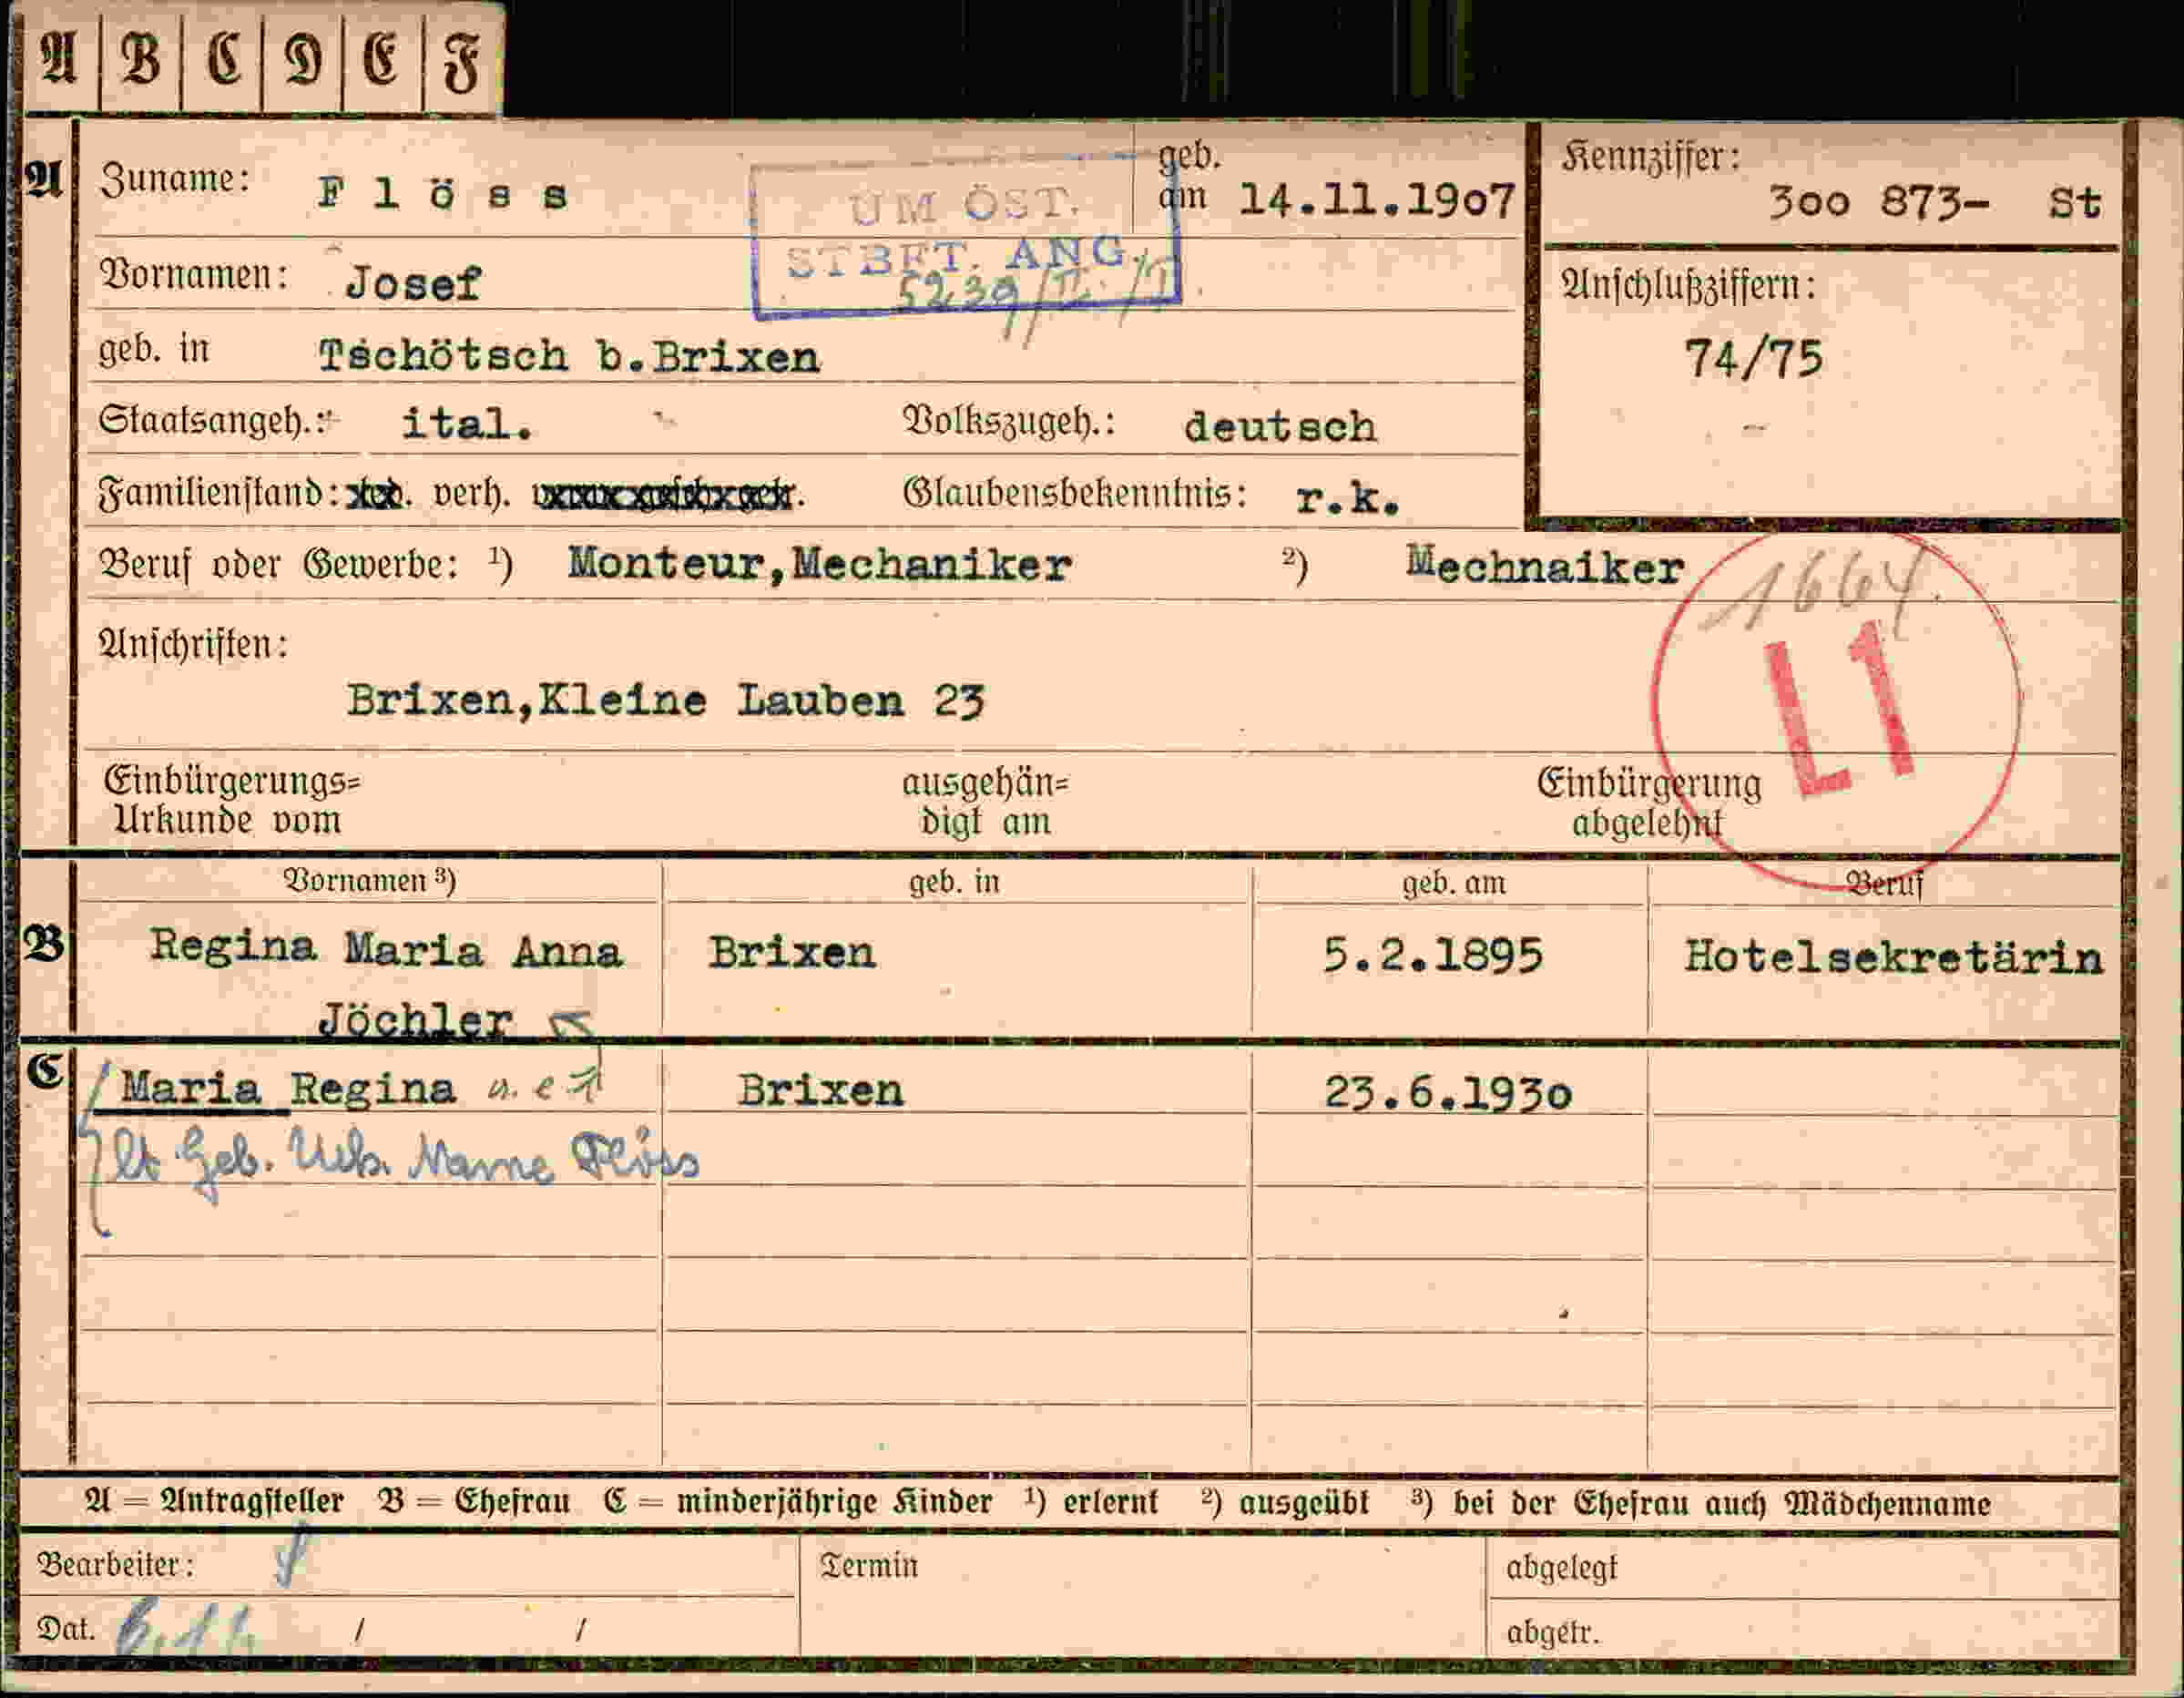 A B C D E F
A Zuname: F l ö s s geb. am 14.11.1907
Kennziffer: 300 873- St
UM ÖST.
STBFT. ANG.
Vornamen: Josef
Anschlußziffern:
74/75
geb. in Tschötsch b.Brixen
Staatsangeh.: ital. Volkszugeh.: deutsch
Familienstand: verh. Glaubensbekenntnis: r.k.
Beruf oder Gewerbe: 1) Monteur,Mechaniker 2) Mechnaiker
1664.
L1
Anschriften:
Brixen,Kleine Lauben 23
Einbürgerungs= ausgehän= Einbürgerung
Urkunde vom digt am abgelehnt
Vornamen 3) geb. in geb. am Beruf
B Regina Maria Anna Brixen 5.2.1895 Hotelsekretärin
Jöchler
C Maria Regina Brixen 23.6.1930
lt Geb. Urk. Name Flöss
A = Antragsteller B = Ehefrau C = minderjährige Kinder 1) erlernt 2) ausgeübt 3) bei der Ehefrau auch Mädchenname
Bearbeiter: Termin abgelegt
Dat. / / abgetr.